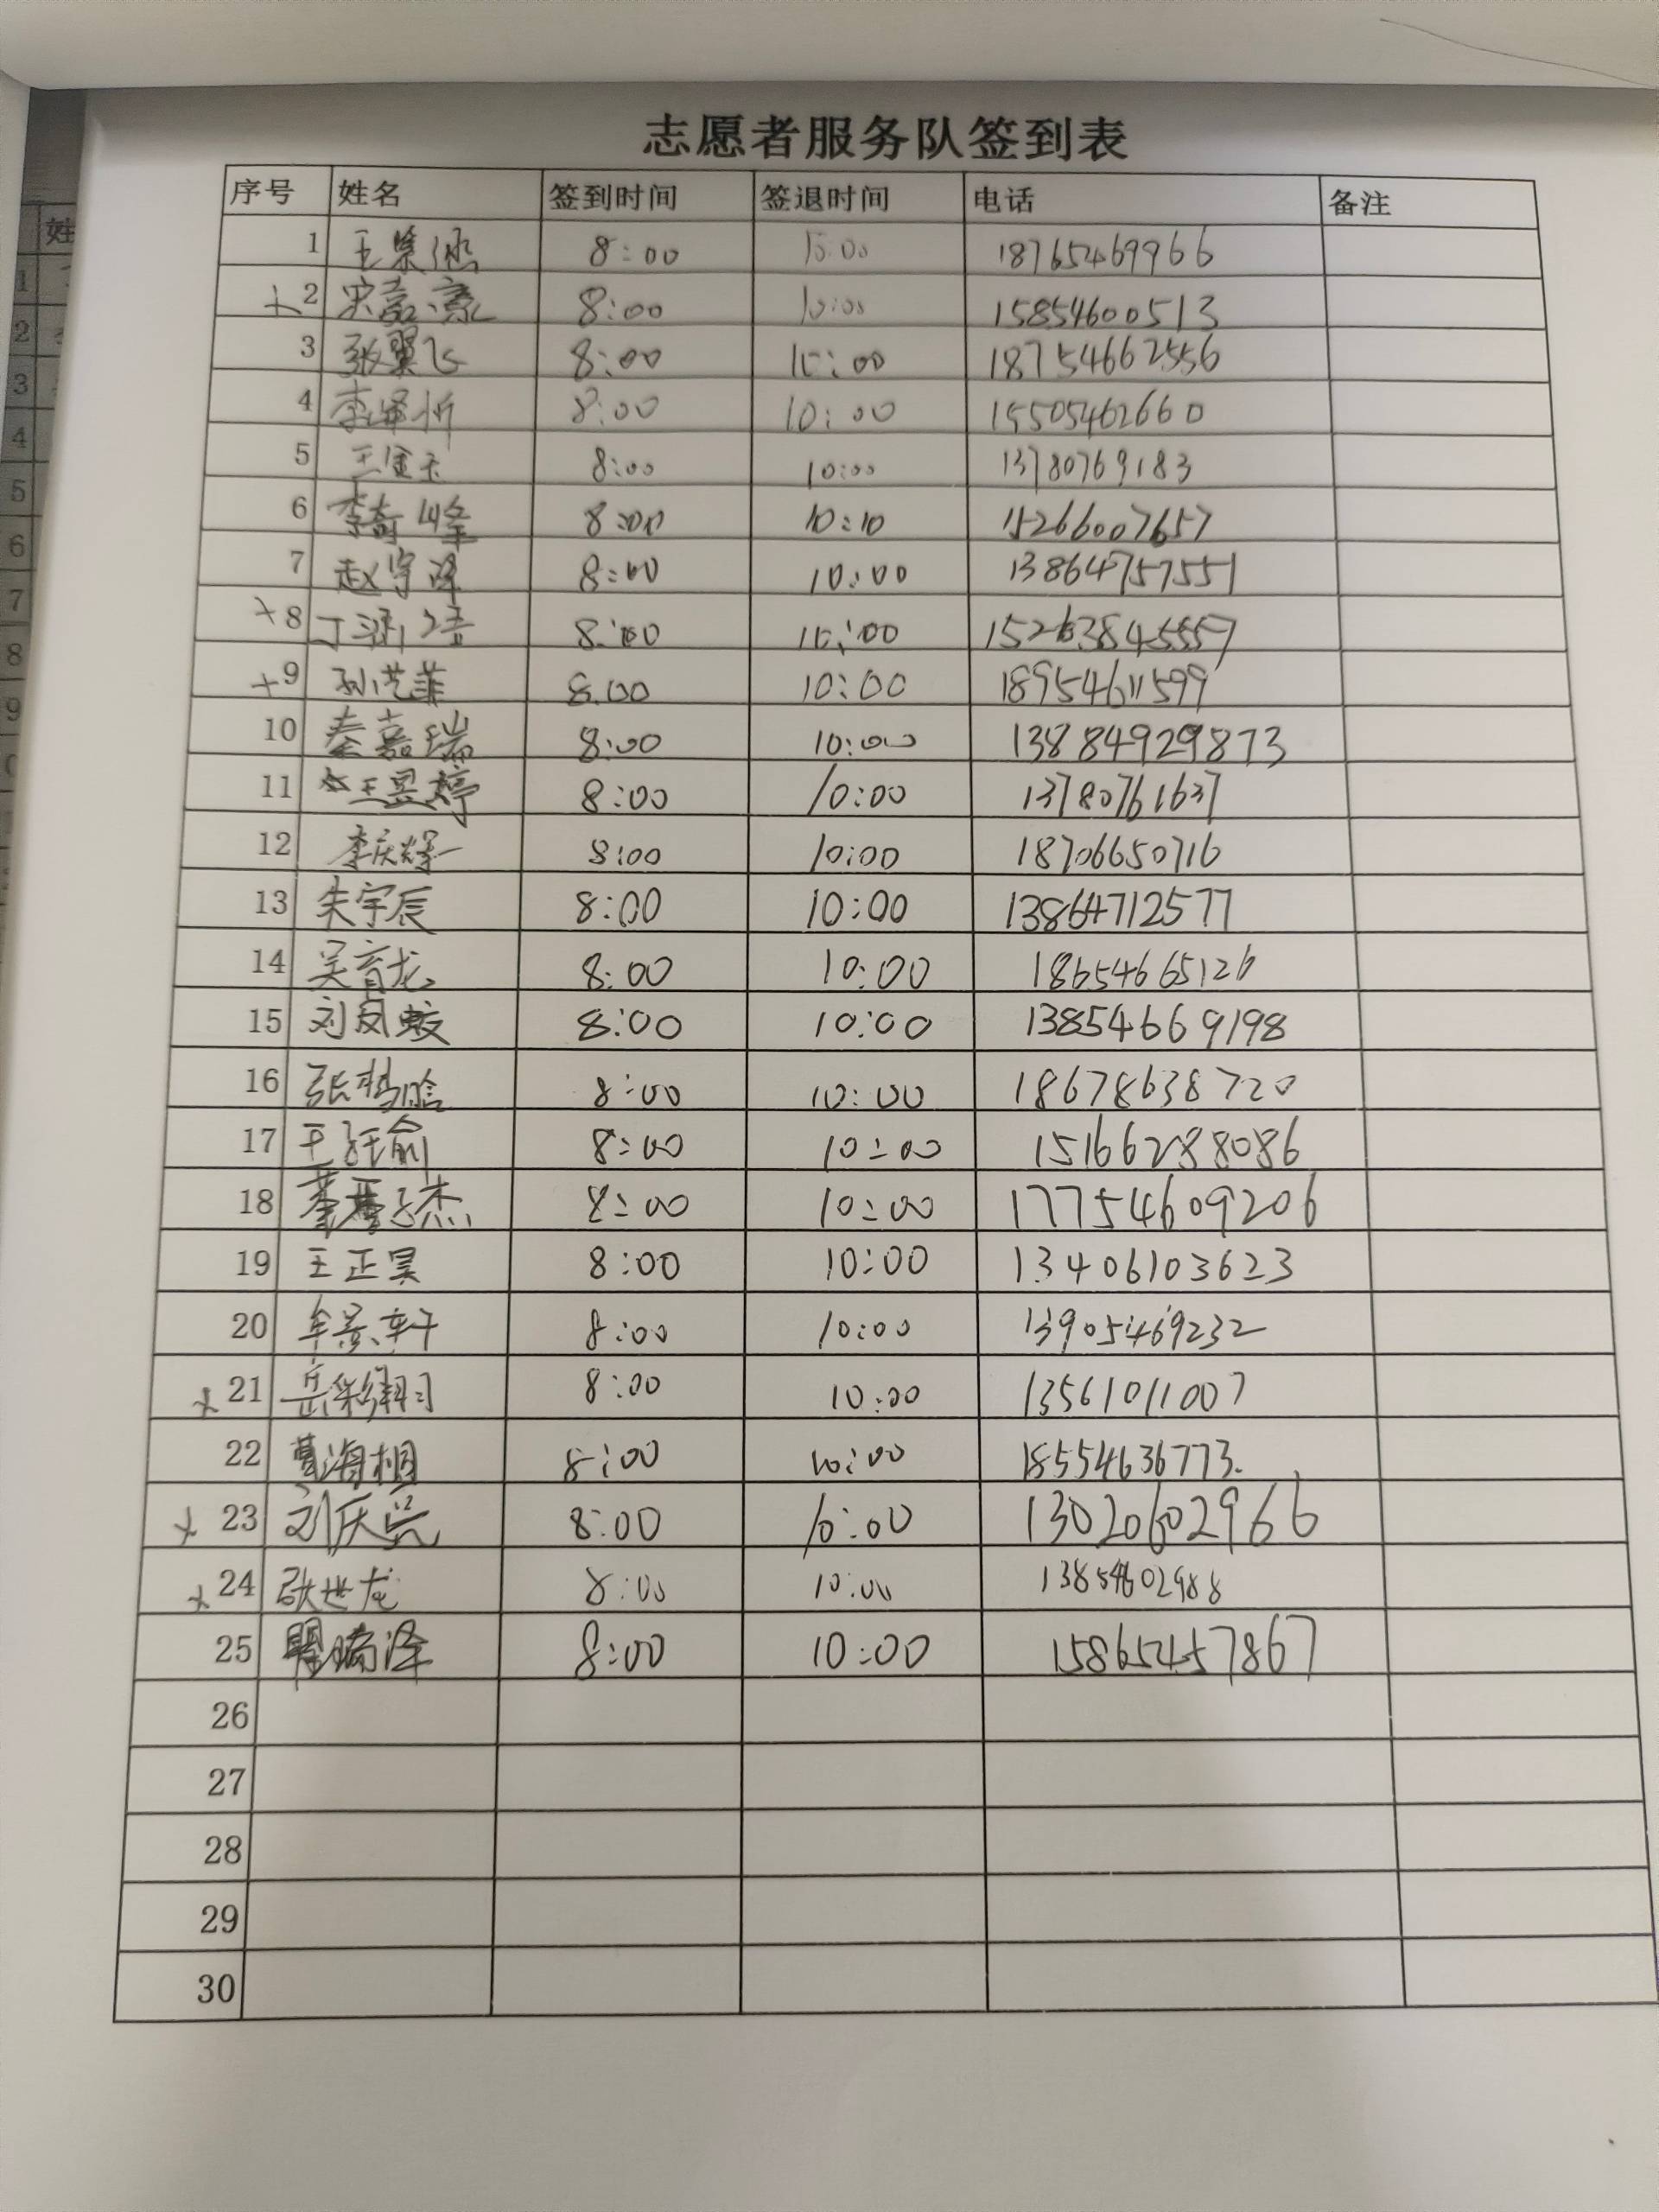 志愿者服务队签到表
序号 姓名 签到时间 签退时间 电话 备注
1 王荣涵 8:00 10:00 18765469966
2 宋嘉豪 8:00 10:00 15854600513
3 张翼飞 8:00 10:00 18754662556
4 李泽忻 8:00 10:00 15505462660
5 王金玉 8:00 10:00 13780769183
6 李奇峰 8:00 10:10 15266007657
7 赵宇泽 8:00 10:00 13864757551
8 丁 8:00 10:00
9 孙艺菲 8:00 10:00 18954611599
10 秦嘉瑞 8:00 10:00 13884929873
11 王昱婷 8:00 10:00 13780761637
12 李庆烽 8:00 10:00 18706650716
13 朱宇辰 8:00 10:00 13864712577
14 吴育龙 8:00 10:00 18654665126
15 刘凤蛟 8:00 10:00 13854669198
16 张 晗 8:00 10:00 18678638720
17 王 瑜 8:00 10:00 15166288086
18 董子杰 8:00 10:00 17754609206
19 王正昊 8:00 10:00 13406103623
20 牟景轩 8:00 10:00 13905469232
21 岳彩翔 8:00 10:00 13561011007
22 葛海桐 8:00 10:00 18554636773.
23 刘庆兴 8:00 10:00 13020602966
24 张世龙 8:00 10:00 13854602988
25 瑞泽 8:00 10:00 15865457867
26
27
28
29
30